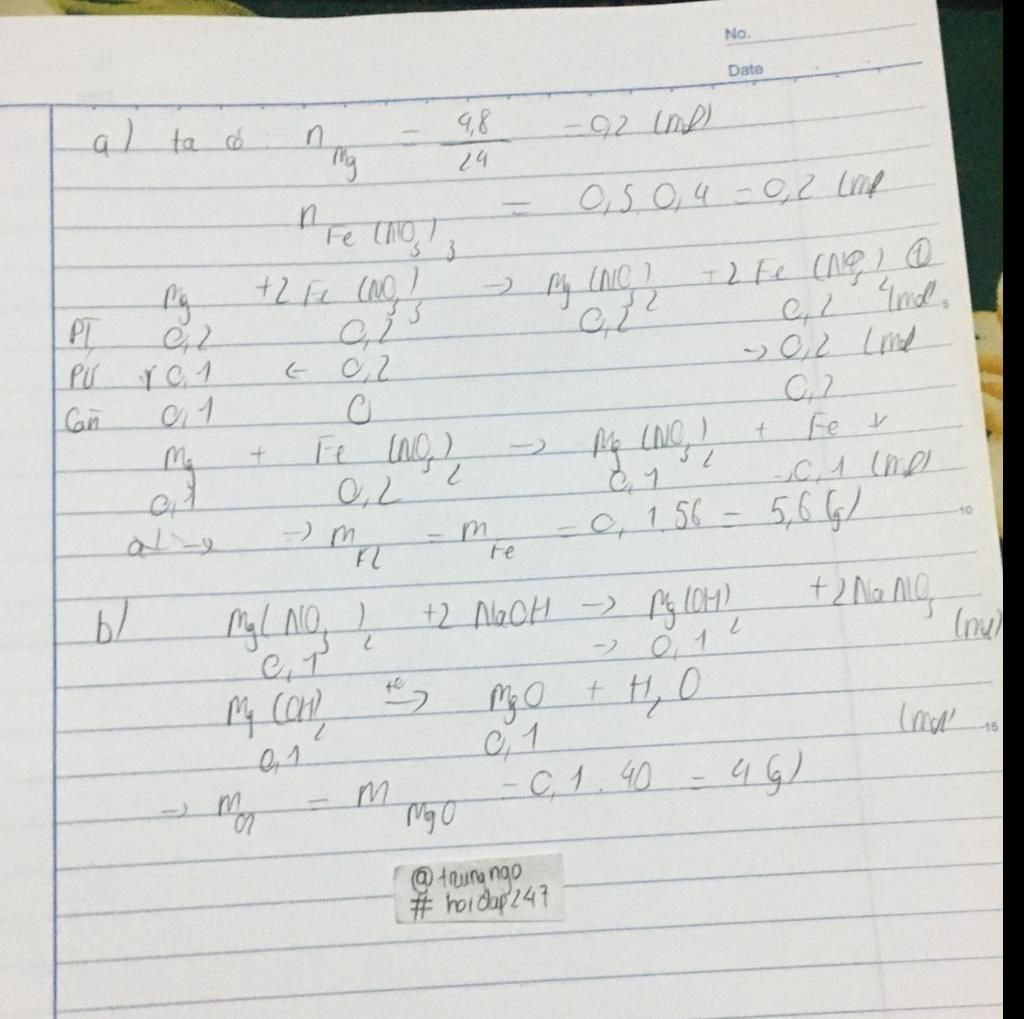 No.
Date
a) ta có: n Mg = 4,8/24 = 0,2 (mol)
n Fe(NO3)3 = 0,5.0,4 = 0,2 (mol
Mg + 2Fe(NO3)3 → Mg(NO3)2 + 2Fe(NO3)2 ①
PT 0,2 0,2 0,2 0,2 (mol)
PƯ 0,1 ← 0,2 → 0,2 (mol
Còn 0,1 0 0,2
Mg + Fe(NO3)2 → Mg(NO3)2 + Fe ↓
0,1 0,2 0,1 → 0,1 (mol)
a) → → m = m Fe = 0,1.56 = 5,6 (g)
10
b) Mg(NO3)2 + 2NaOH → Mg(OH)2 + 2NaNO3
0,1 → 0,1 (mol)
Mg(OH)2 t° → MgO + H2O
0,1 0,1 (mol)
15
→ m = m MgO = 0,1.40 = 4 (g)
@trungngo
# hoidap247